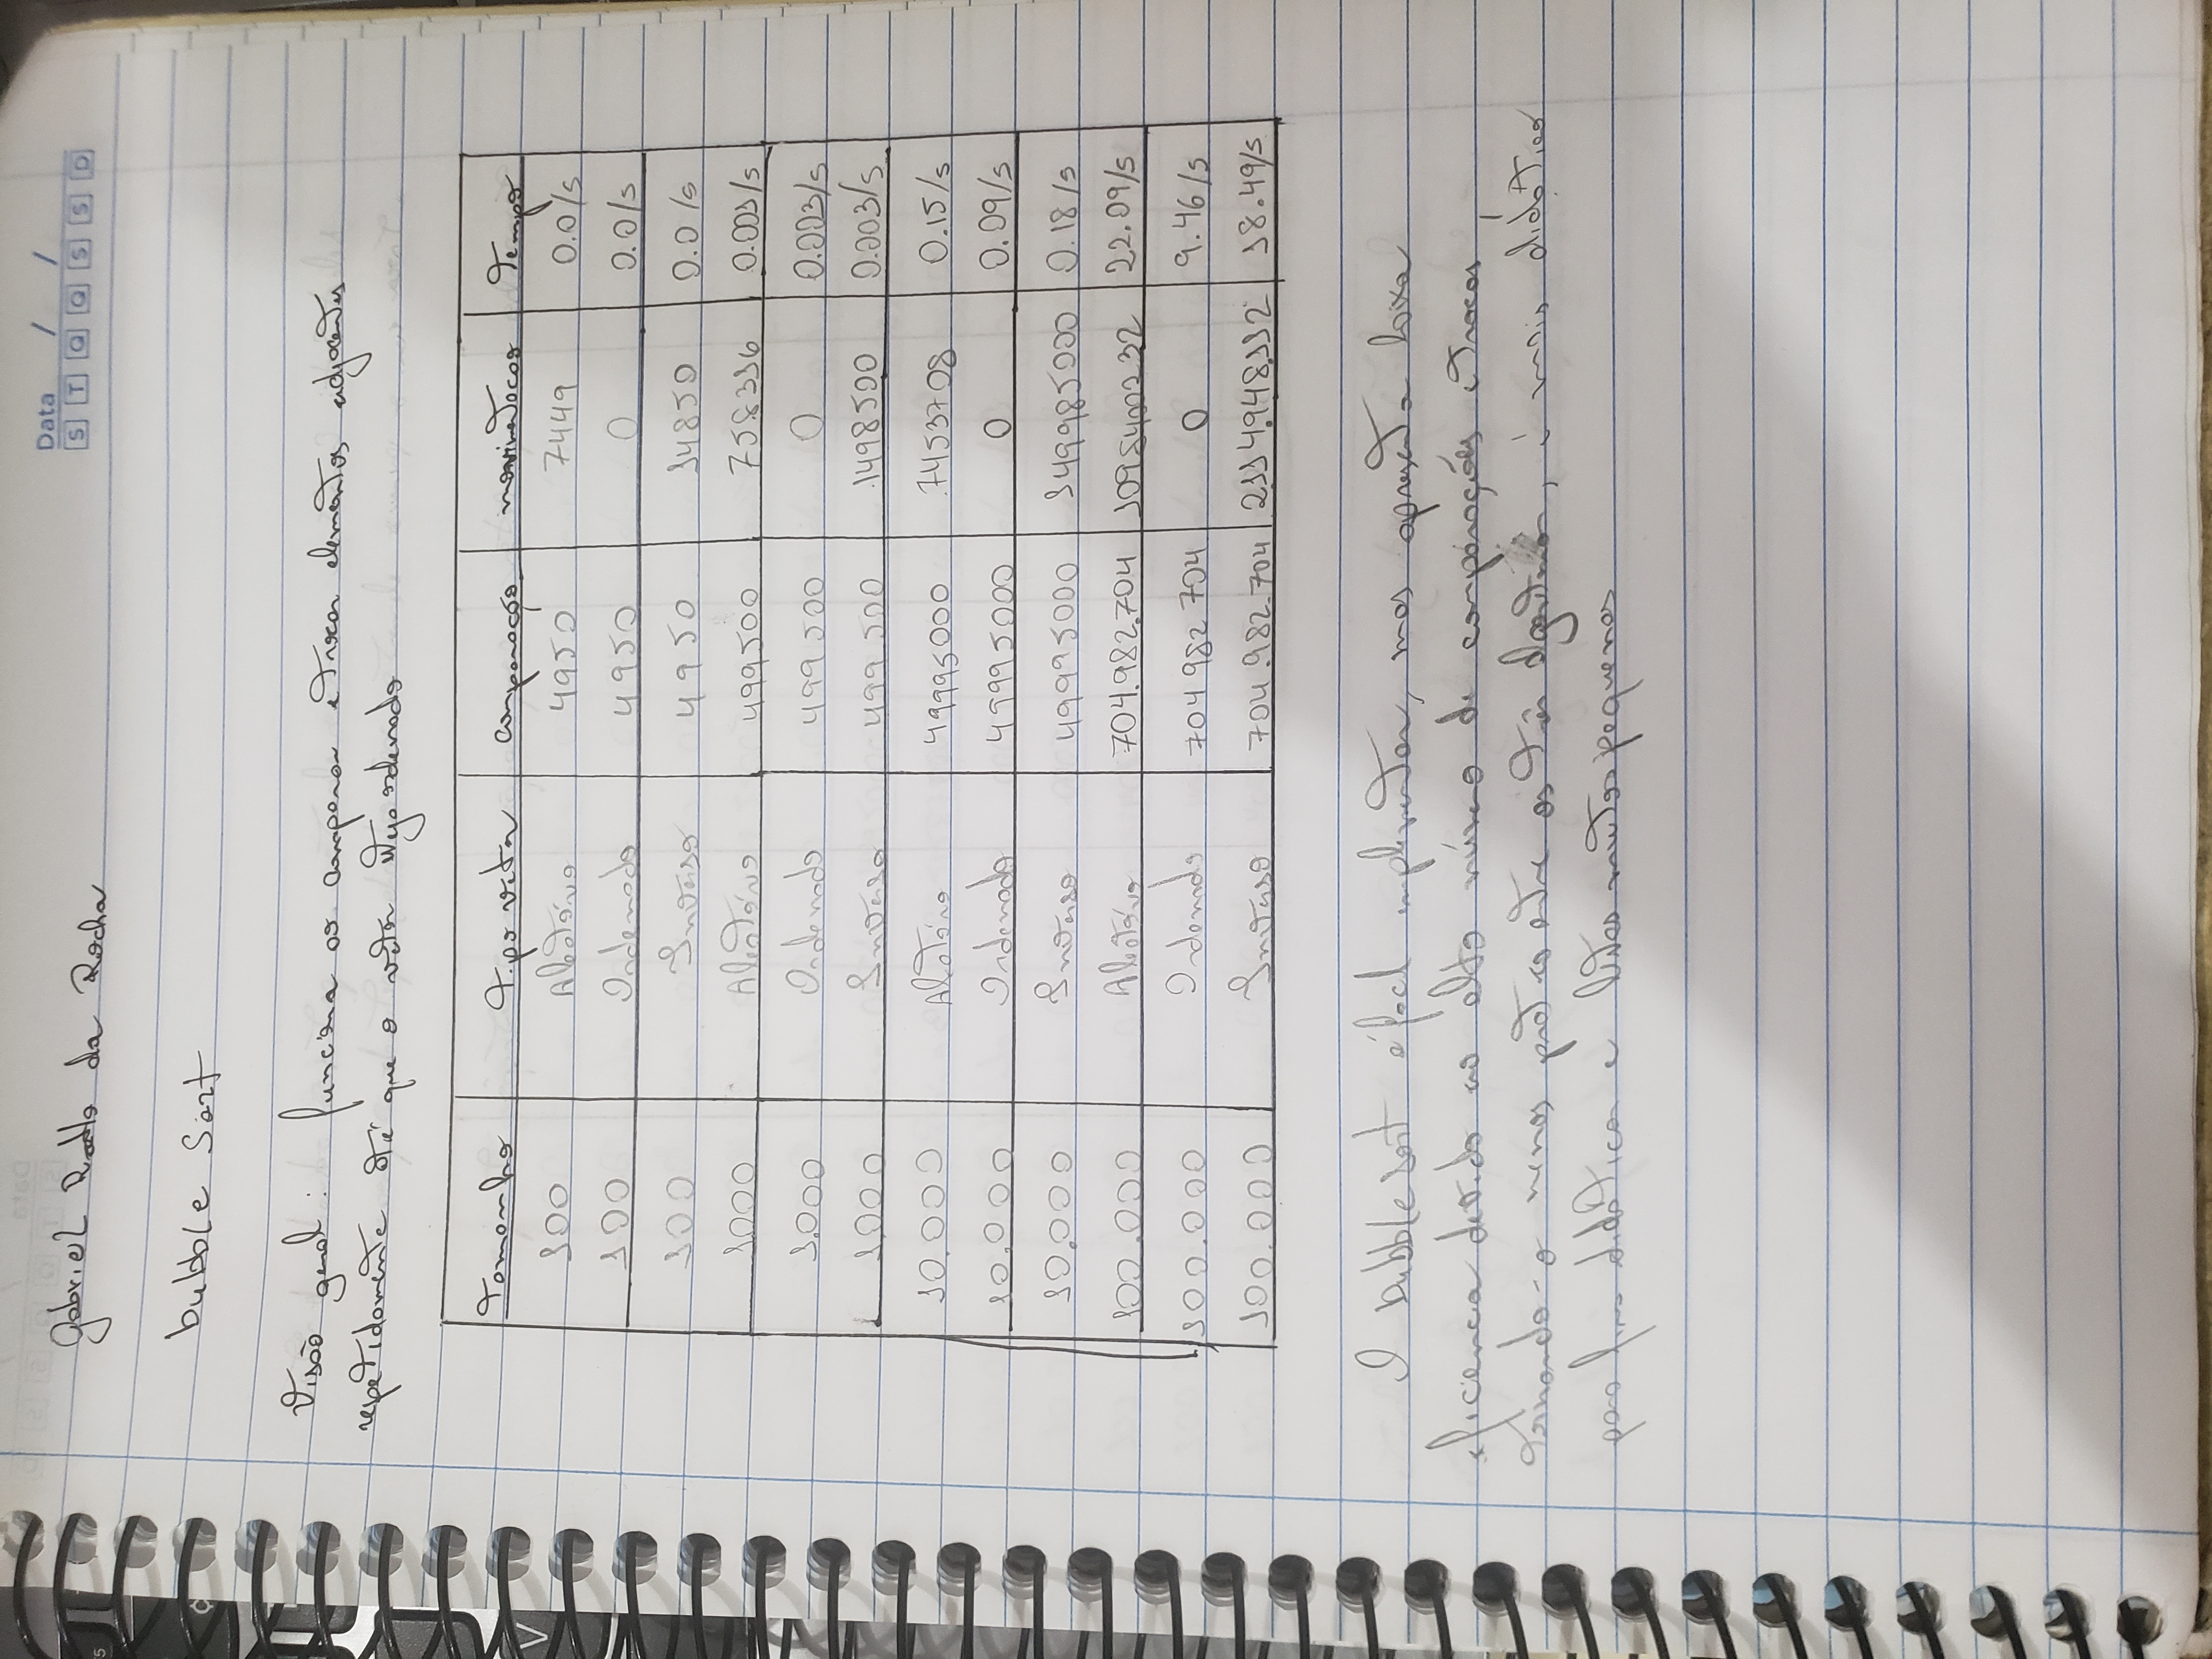 Data / /
S T Q Q S S D
Gabriel da Rocha
bubble Sort
Visão geral: funciona ao comparar e trocar elementos adjacentes
repetidamente até que o vetor seja ordenado
Tamanho Tipo vetor comparação movimentacao Tempo
100 Aleatório 4950 7449 0.0/s
100 Ordenado 4950 0 0.0/s
100 Inverso 4950 14850 0.0/s
1000 Aleatório 499500 758316 0.001/s
1.000 Ordenado 499500 0 0.003/s
1.000 Inverso 499.500 1498500 0.003/s
10.000 Aleatório 49995000 7453708 0.15/s
10.000 Ordenado 49995000 0 0.09/s
10.000 Inverso 49995000 149985000 0.18/s
100.000 Aleatório 704.982.704 22.09/s
100.000 Ordenado 704982704 0 9.46/s
100.000 Inverso 704.982.704 2114.948.112 18.49/s
O bubble sort é facil implementar, mas apresenta baixa
eficiencia devido ao alto número de comparações e trocas,
tornando-o menos pratico entre os três algoritmos, é mais didático
para fins didáticos e listas muitos pequenas